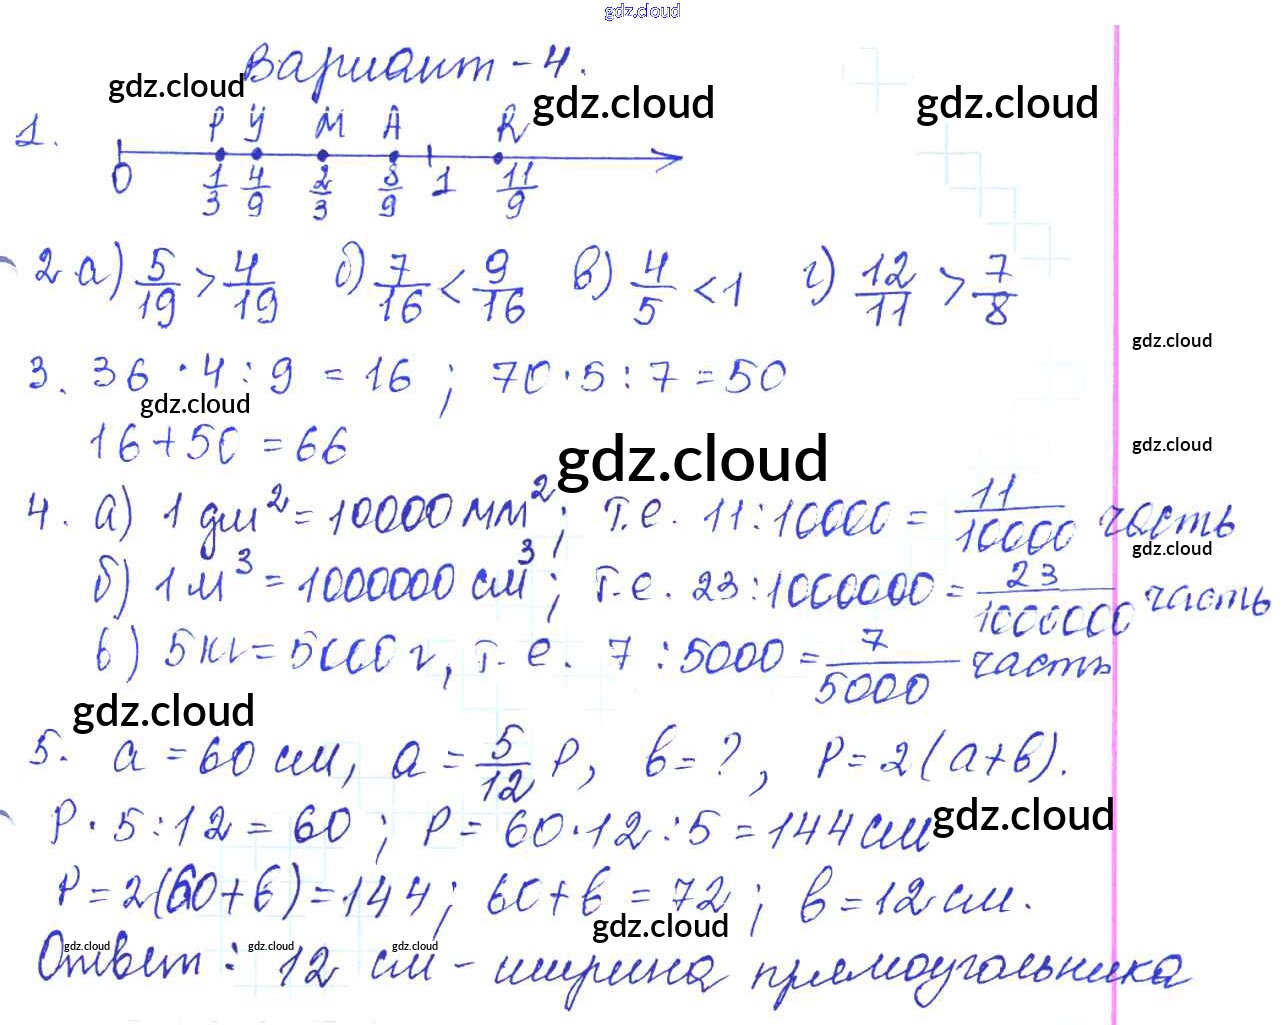 gdz.cloud
Вариант - 4.
gdz.cloud gdz.cloud gdz.cloud
1. P У M A R
0 1/3 4/9 2/3 8/9 1 11/9
2 а) 5/19 > 4/19 б) 7/16 < 9/16 в) 4/5 < 1 г) 12/11 > 7/8
gdz.cloud
3. 36 · 4 : 9 = 16 ; 70 · 5 : 7 = 50
gdz.cloud
16 + 50 = 66
gdz.cloud gdz.cloud
4. а) 1 дм² = 10000 мм² ; т.е. 11 : 10000 = 11/10000 часть
gdz.cloud
б) 1 м³ = 1000000 см³ ; т.е. 23 : 1000000 = 23/1000000 часть
в) 5 кг = 5000 г, т.е. 7 : 5000 = 7/5000 часть
gdz.cloud
5. a = 60 см, a = 5/12 P, в = ? , P = 2(a+в).
P · 5 : 12 = 60 ; P = 60 · 12 : 5 = 144 см
gdz.cloud
P = 2(60 + в) = 144 ; 60 + в = 72 ; в = 12 см.
gdz.cloud
gdz.cloud gdz.cloud gdz.cloud
Ответ : 12 см - ширина прямоугольника